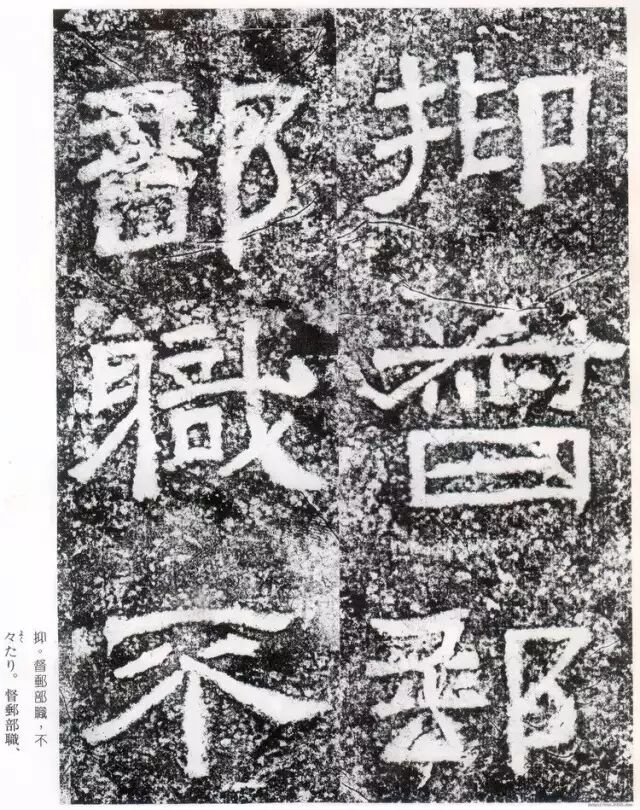 抑督郵
部軄不
抑。督郵部職，不
々たり。督郵部職、